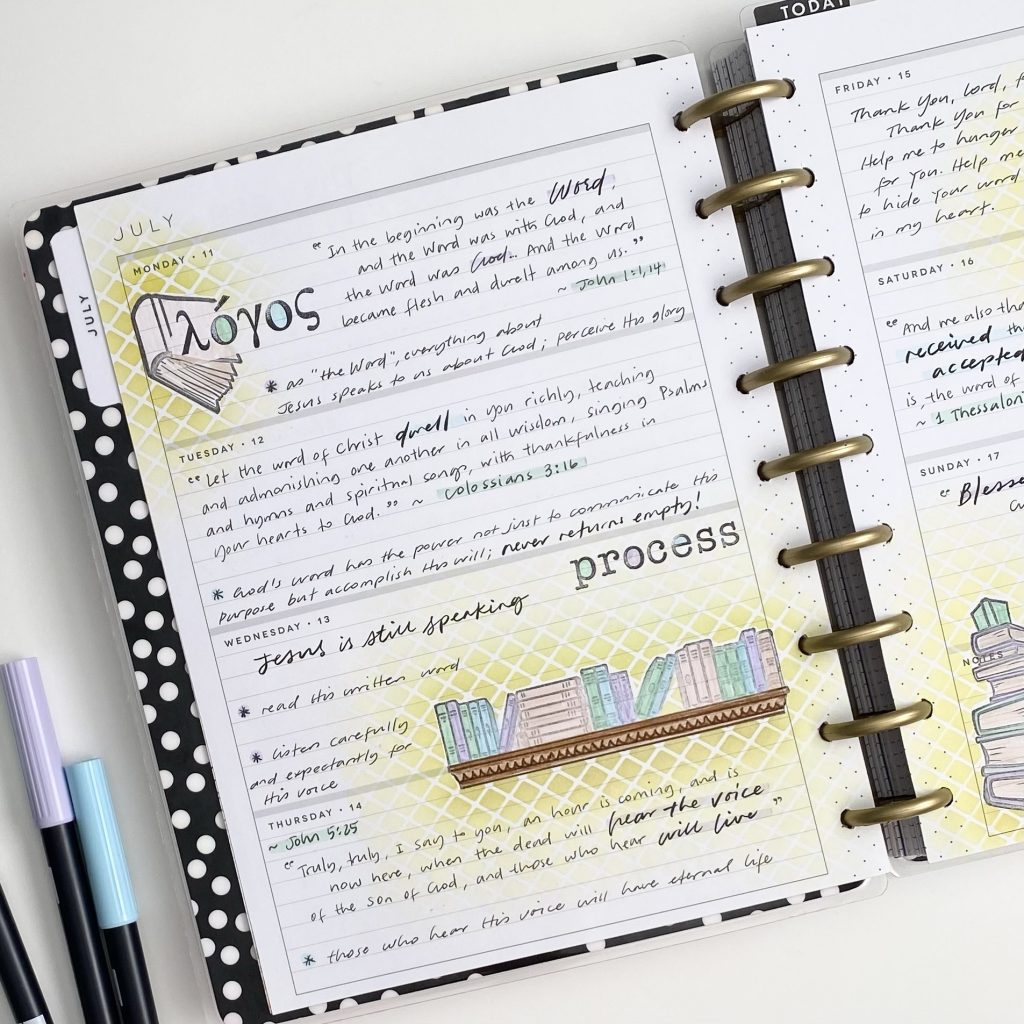 TODAY
JULY
JULY
MONDAY • 11
λόγος
"In the beginning was the Word,
and the Word was with God, and
the Word was God... And the Word
became flesh and dwelt among us."
~ John 1:1,14
* as "the Word", everything about
Jesus speaks to us about God; perceive His glory
TUESDAY • 12
"Let the word of Christ dwell in you richly, teaching
and admonishing one another in all wisdom, singing Psalms
and hymns and spiritual songs, with thankfulness in
your hearts to God." ~ Colossians 3:16
* God's word has the power not just to communicate His
purpose but accomplish His will; never returns empty!
process
WEDNESDAY • 13
Jesus is still speaking
* read His written word
* listen carefully
and expectantly for
His voice
THURSDAY • 14
~ John 5:25
"Truly, truly, I say to you, an hour is coming, and is
now here, when the dead will hear the voice
of the son of God, and those who hear will live"
* those who hear His voice will have eternal life
FRIDAY • 15
Thank You, Lord,
Thank You for
Help me to hunger
for You. Help me
to hide Your word
in my heart.
SATURDAY • 16
"And we also
received
accepted
is, the word of
~ 1
SUNDAY • 17
"
NOTES